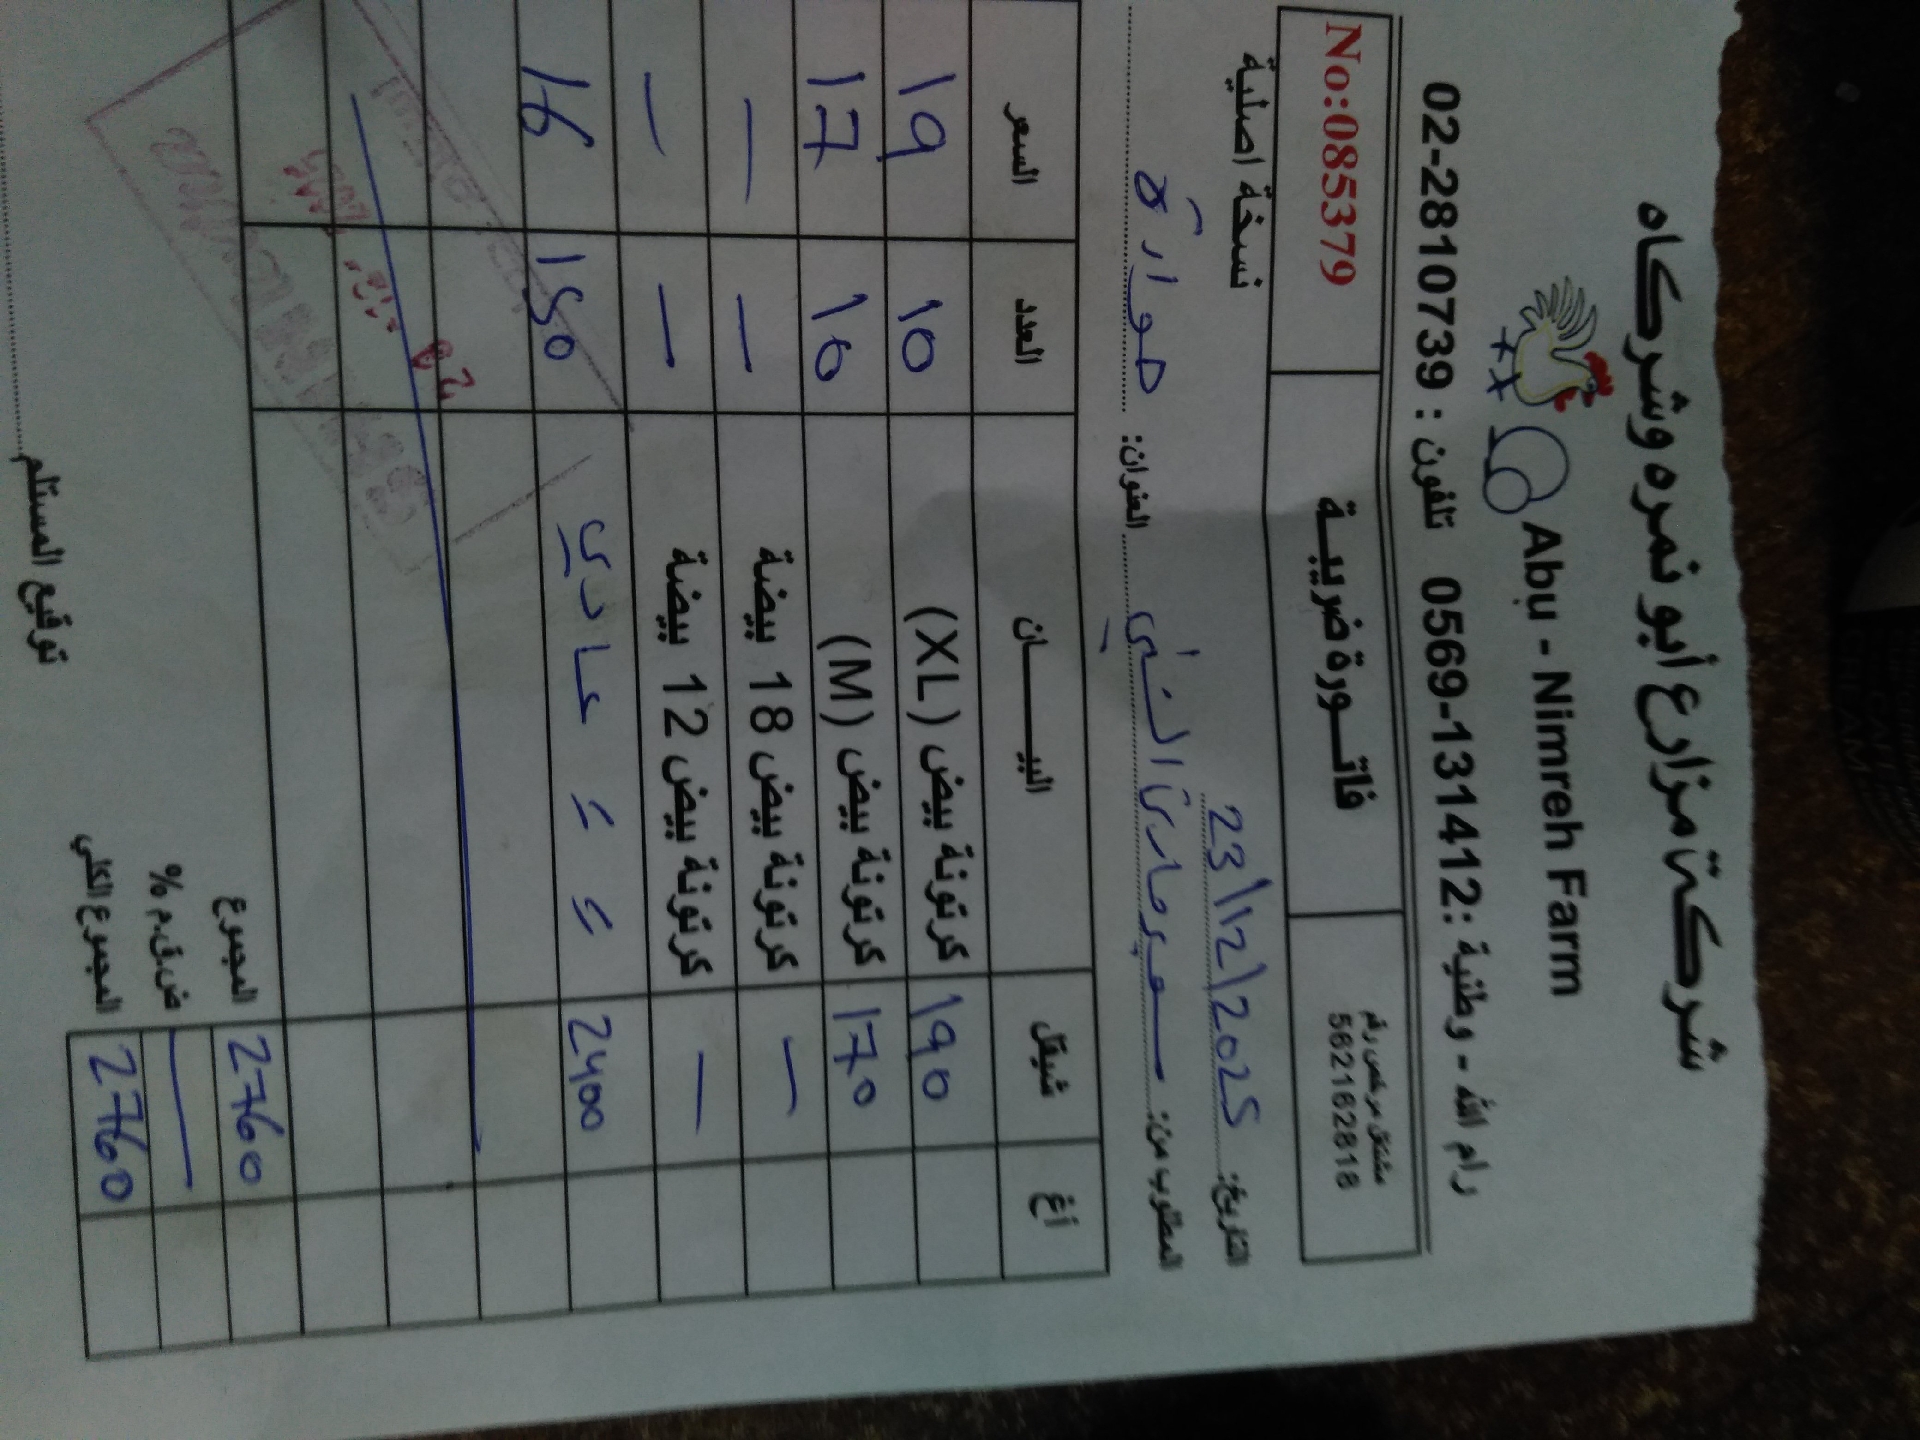 شركة مزارع أبو نمره وشركاه
Abu - Nimreh Farm
رام الله - وطنية :0569-131412 تلفون : 02-2810739
مشتغل مرخص رقم
562162818
فاتورة ضريبية
No:085379
التاريخ: 23/12/2025
نسخة اصلية
المطلوب من: سوبرماركت العنوان: حوارة
أغ شيقل البيان العدد السعر
190 كرتونة بيض (XL) 10 19
170 كرتونة بيض (M) 10 17
— كرتونة بيض 18 بيضة — —
— كرتونة بيض 12 بيضة — —
2400 = = عادي 150 16
2760 المجموع
— ض.ق.م %
2760 المجموع الكلي
توقيع المستلم